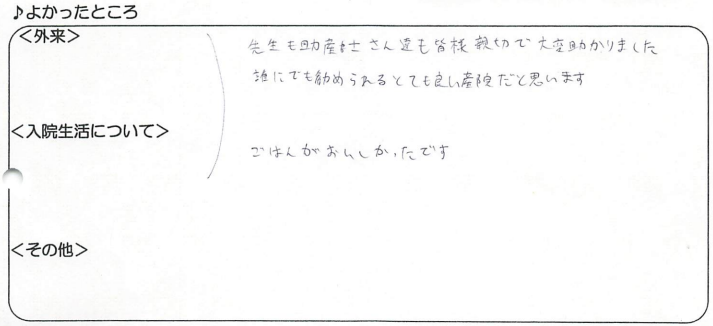 ♪よかったところ
<外来>
先生も助産士さん達も皆様親切で大変助かりました
誰にでも勧められるとても良い産院だと思います
<入院生活について>
ごはんがおいしかったです
<その他>